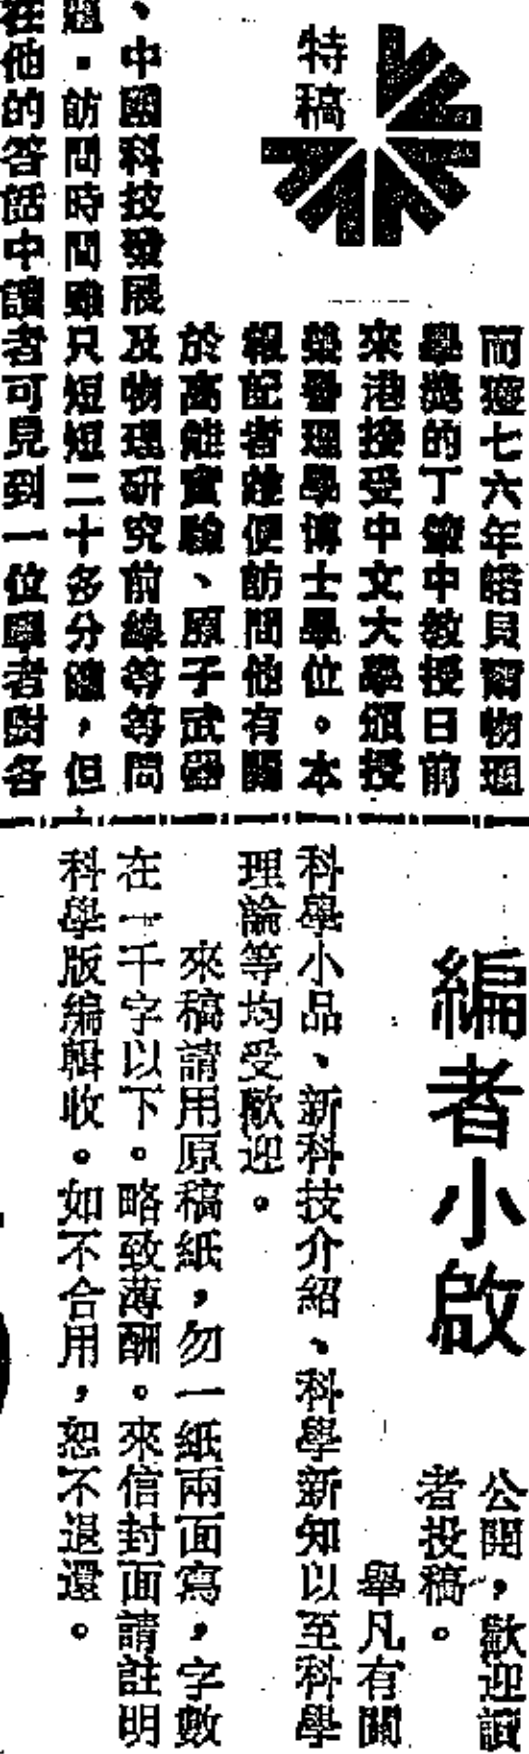 特稿
而獲七六年諾貝爾物理
學獎的丁肇中教授日前
來港接受中文大學頒授
榮譽理學博士學位。本
報記者趁便訪問他有關
於高能實驗、原子武器
、中國科技發展及物理研究前線等等問
題。訪問時間雖只短短二十多分鐘，但
在他的答話中讀者可見到一位學者對各
編者小啟
公開，歡迎讀
者投稿。
舉凡有關
科學小品、新科技介紹、科學新知以至科學
理論等均受歡迎。
來稿請用原稿紙，勿一紙兩面寫，字數
在一千字以下。略致薄酬。來信封面請註明
科學版編輯收。如不合用，恕不退還。